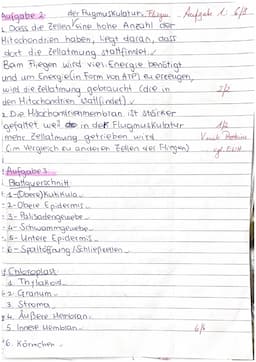 Aufgabe 2: der Flugmuskulatur, Fliegen Aufgabe 1: 6/8
1. Dass die Zellen eine hohe Anzahl der
Mitochondrien haben, liegt daran, dass
dort die Zellatmung stattfindet.
Bam Fliegen wird viel Energie benötigt
und um Energie (in Form von ATP) zu erzeugen,
wird die Zellatmung gebraucht (die in
den Mitochondrien stattfindet). 2/2
2. Die Mitochondrienmembran ist stärker
gefaltet weil in der Flugmuskulatur 1/2
mehr Zellatmung getrieben wird
(im Vergleich zu anderen Zellen der Fliegen)
Aufgabe 3
Blattquerschnitt:
1-(Obere) Kutikula
2-Obere Epidermis
3-Palisadengewebe
4-Schwammgewebe
5-Untere Epidermis
6-Spaltöffnung/Schließzellen
Chloroplast:
1. Thylakoid
2. Granum
3. Stroma
4. Äußere Membran
5. Innere Membran 6/6
6. Körnchen